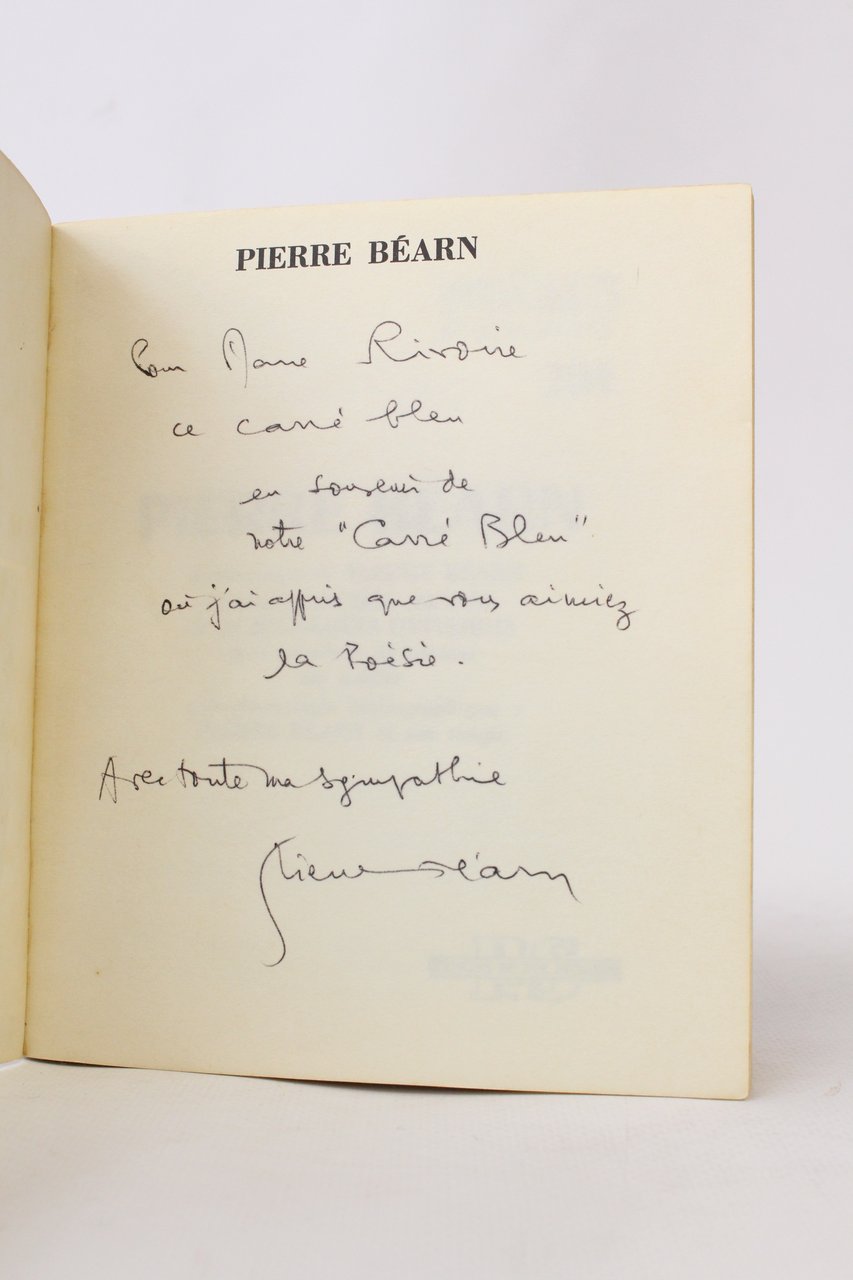 PIERRE BÉARN
Pour Marie Rivoire
ce carré bleu
en souvenir de
notre "Carré Bleu"
où j'ai appris que vous aimiez
la Poésie.
Avec toute ma sympathie
Pierre Béarn